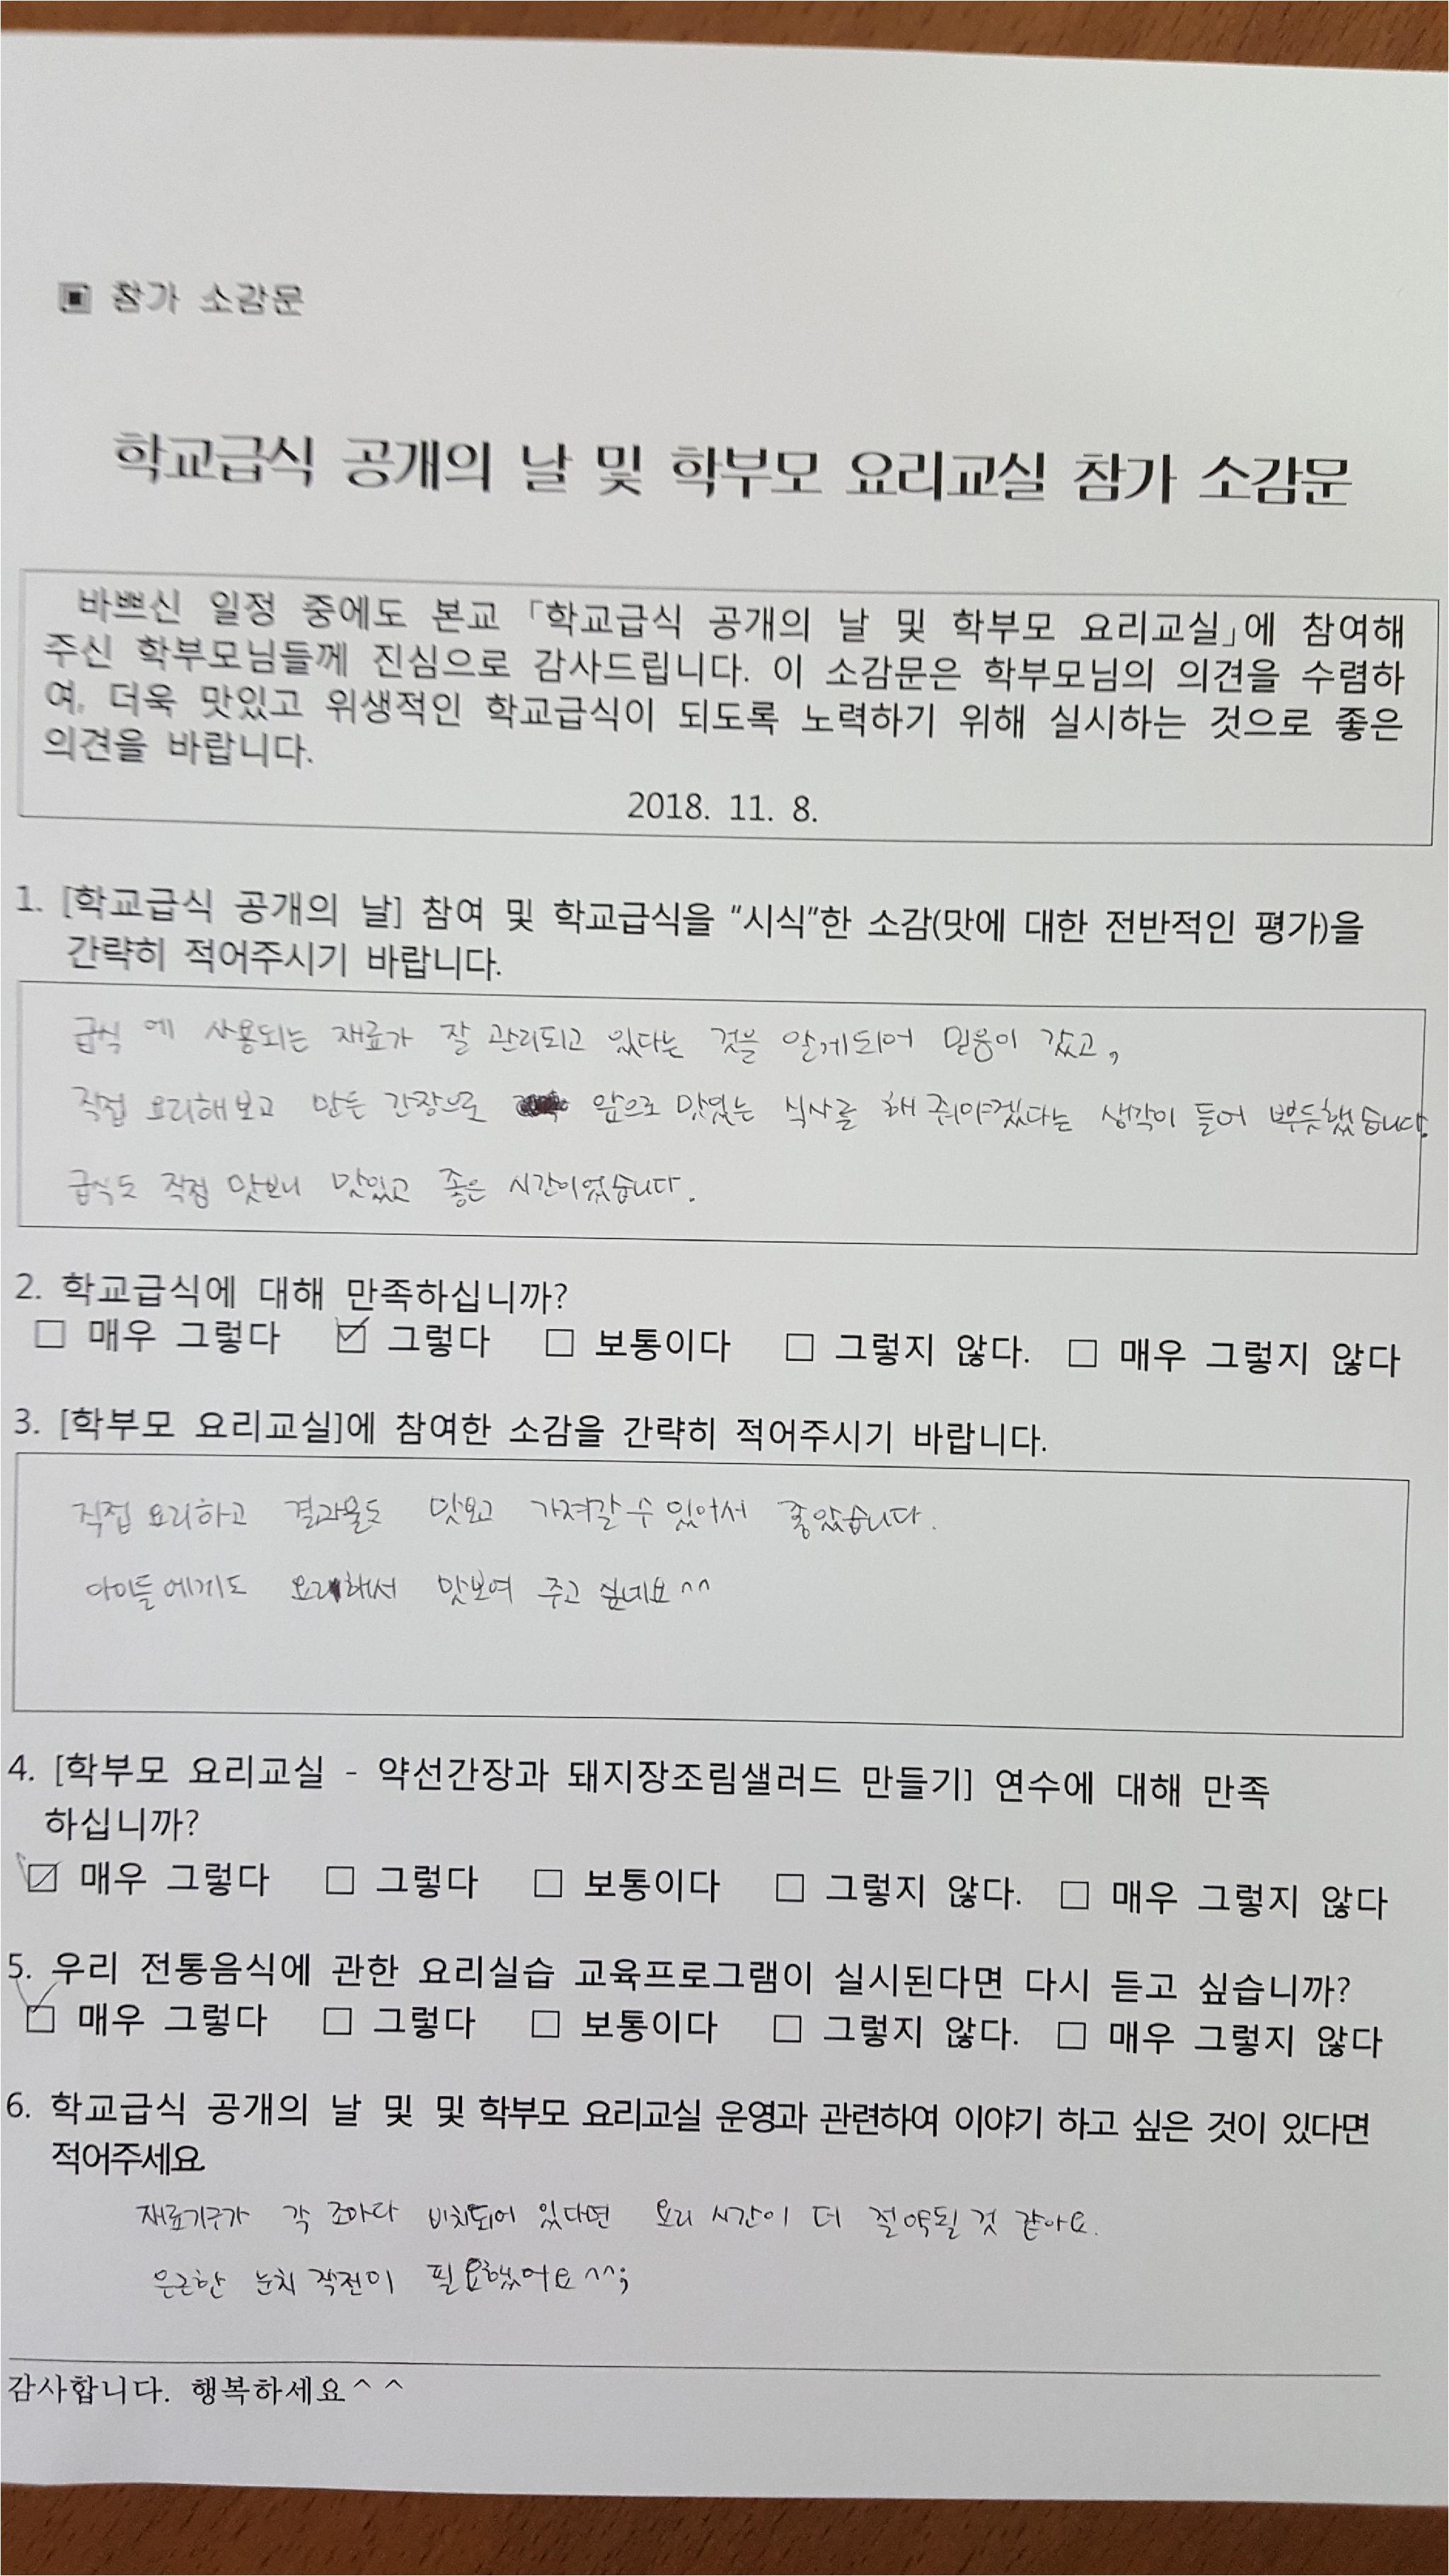 ▣ 참가 소감문
학교급식 공개의 날 및 학부모 요리교실 참가 소감문
바쁘신 일정 중에도 본교 「학교급식 공개의 날 및 학부모 요리교실」에 참여해
주신 학부모님들께 진심으로 감사드립니다. 이 소감문은 학부모님의 의견을 수렴하
여, 더욱 맛있고 위생적인 학교급식이 되도록 노력하기 위해 실시하는 것으로 좋은
의견을 바랍니다.
2018. 11. 8.
1. [학교급식 공개의 날] 참여 및 학교급식을 “시식”한 소감(맛에 대한 전반적인 평가)을
간략히 적어주시기 바랍니다.
급식에 사용되는 재료가 잘 관리되고 있다는 것을 알게되어 믿음이 갔고,
직접 요리해보고 만든 간장으로 앞으로 맛있는 식사를 해 줘야겠다는 생각이 들어 뿌듯했습니다.
급식도 직접 맛보니 맛있고 좋은 시간이었습니다.
2. 학교급식에 대해 만족하십니까?
□ 매우 그렇다 ☑ 그렇다 □ 보통이다 □ 그렇지 않다. □ 매우 그렇지 않다
3. [학부모 요리교실]에 참여한 소감을 간략히 적어주시기 바랍니다.
직접 요리하고 결과물도 맛보고 가져갈 수 있어서 좋았습니다.
아이들에게도 요리해서 맛보여 주고 싶네요^^
4. [학부모 요리교실 - 약선간장과 돼지장조림샐러드 만들기] 연수에 대해 만족
하십니까?
☑ 매우 그렇다 □ 그렇다 □ 보통이다 □ 그렇지 않다. □ 매우 그렇지 않다
5. 우리 전통음식에 관한 요리실습 교육프로그램이 실시된다면 다시 듣고 싶습니까?
☑ 매우 그렇다 □ 그렇다 □ 보통이다 □ 그렇지 않다. □ 매우 그렇지 않다
6. 학교급식 공개의 날 및 및 학부모 요리교실 운영과 관련하여 이야기 하고 싶은 것이 있다면
적어주세요.
재료기구가 각 조마다 비치되어 있다면 요리 시간이 더 절약될 것 같아요.
은근한 눈치 작전이 필요했어요^^;
감사합니다. 행복하세요^^